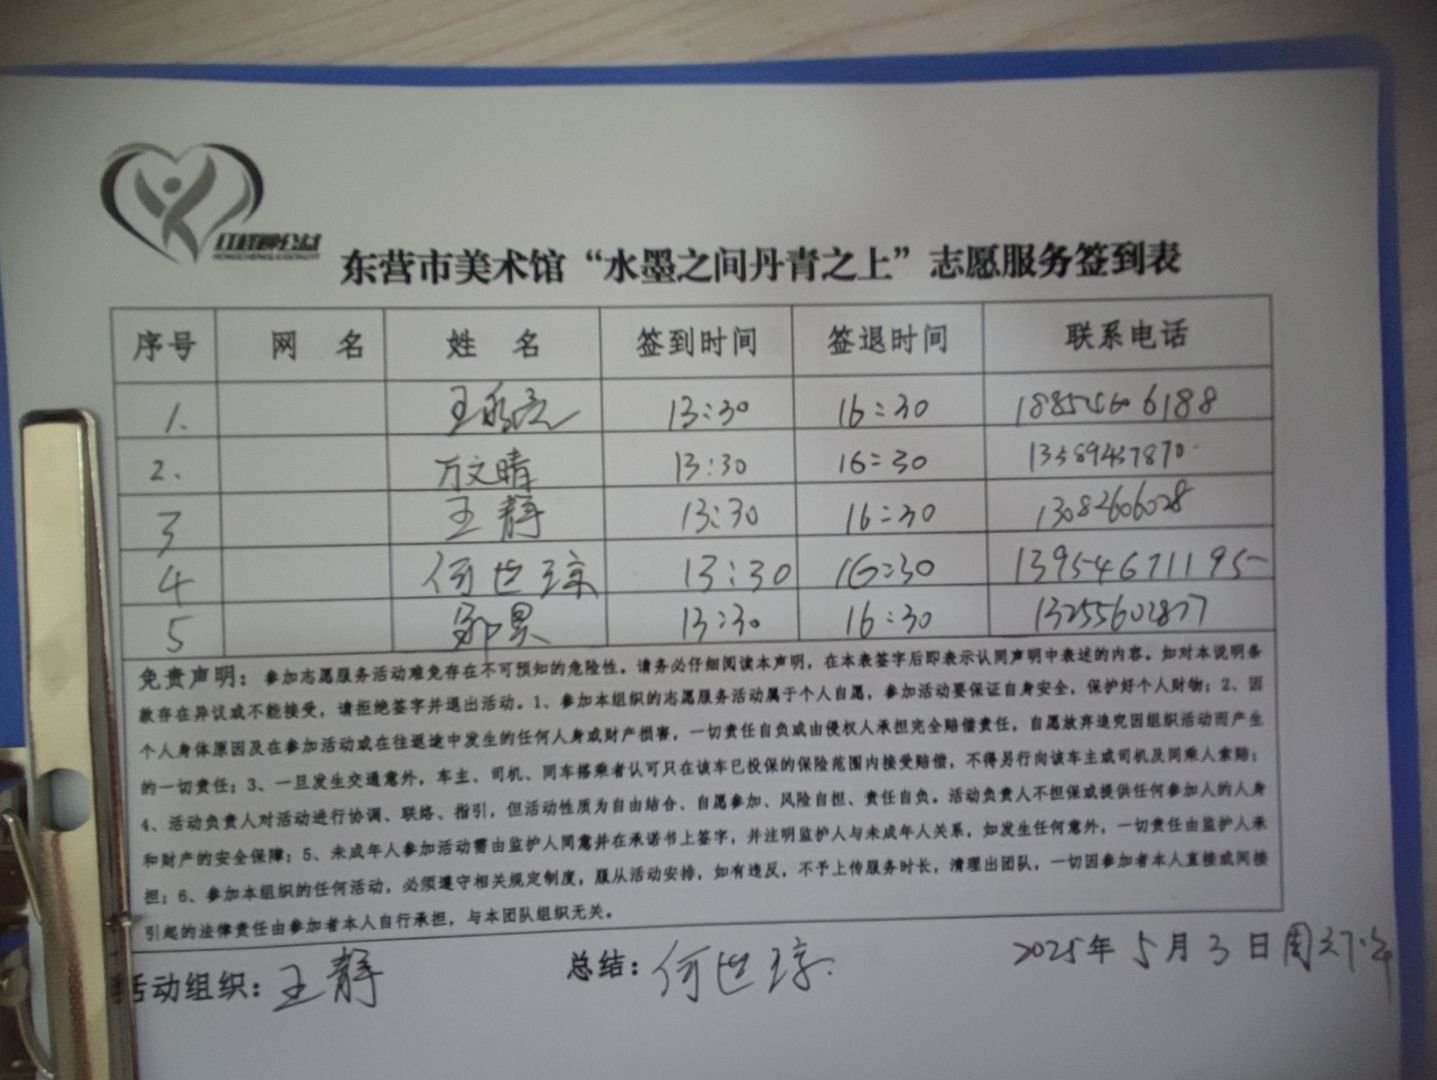 红橙围公益
东营市美术馆“水墨之间丹青之上”志愿服务签到表
序号 网 名 姓 名 签到时间 签退时间 联系电话
1. 王 13:30 16:30 18854606188
2. 万文晴 13:30 16:30 13589437870
3 王静 13:30 16:30 13082606028
4 何世琼 13:30 16:30 13954671195
5 13:30 16:30 13255602877
免责声明：参加志愿服务活动难免存在不可预知的危险性。请务必仔细阅读本声明，在本表签字后即表示认同声明中表述的内容。如对本说明条
款存在异议或不能接受，请拒绝签字并退出活动。1、参加本组织的志愿服务活动属于个人自愿，参加活动要保证自身安全，保护好个人财物；2、因
个人身体原因及在参加活动或在往返途中发生的任何人身或财产损害，一切责任自负或由侵权人承担完全赔偿责任，自愿放弃追究因组织活动而产生
的一切责任；3、一旦发生交通意外，车主、司机、同车搭乘者认可只在该车已投保的保险范围内接受赔偿，不得另行向该车主或司机及同乘人索赔；
4、活动负责人对活动进行协调、联络、指引，但活动性质为自由结合、自愿参加、风险自担、责任自负。活动负责人不担保或提供任何参加人的人身
和财产的安全保障；5、未成年人参加活动需由监护人同意并在承诺书上签字，并注明监护人与未成年人关系，如发生任何意外，一切责任由监护人承
担；6、参加本组织的任何活动，必须遵守相关规定制度，服从活动安排，如有违反，不予上传服务时长，清理出团队，一切因参加者本人直接或间接
引起的法律责任由参加者本人自行承担，与本团队组织无关。
活动组织：王静 总结：何世琼 2025年5月3日周六下午